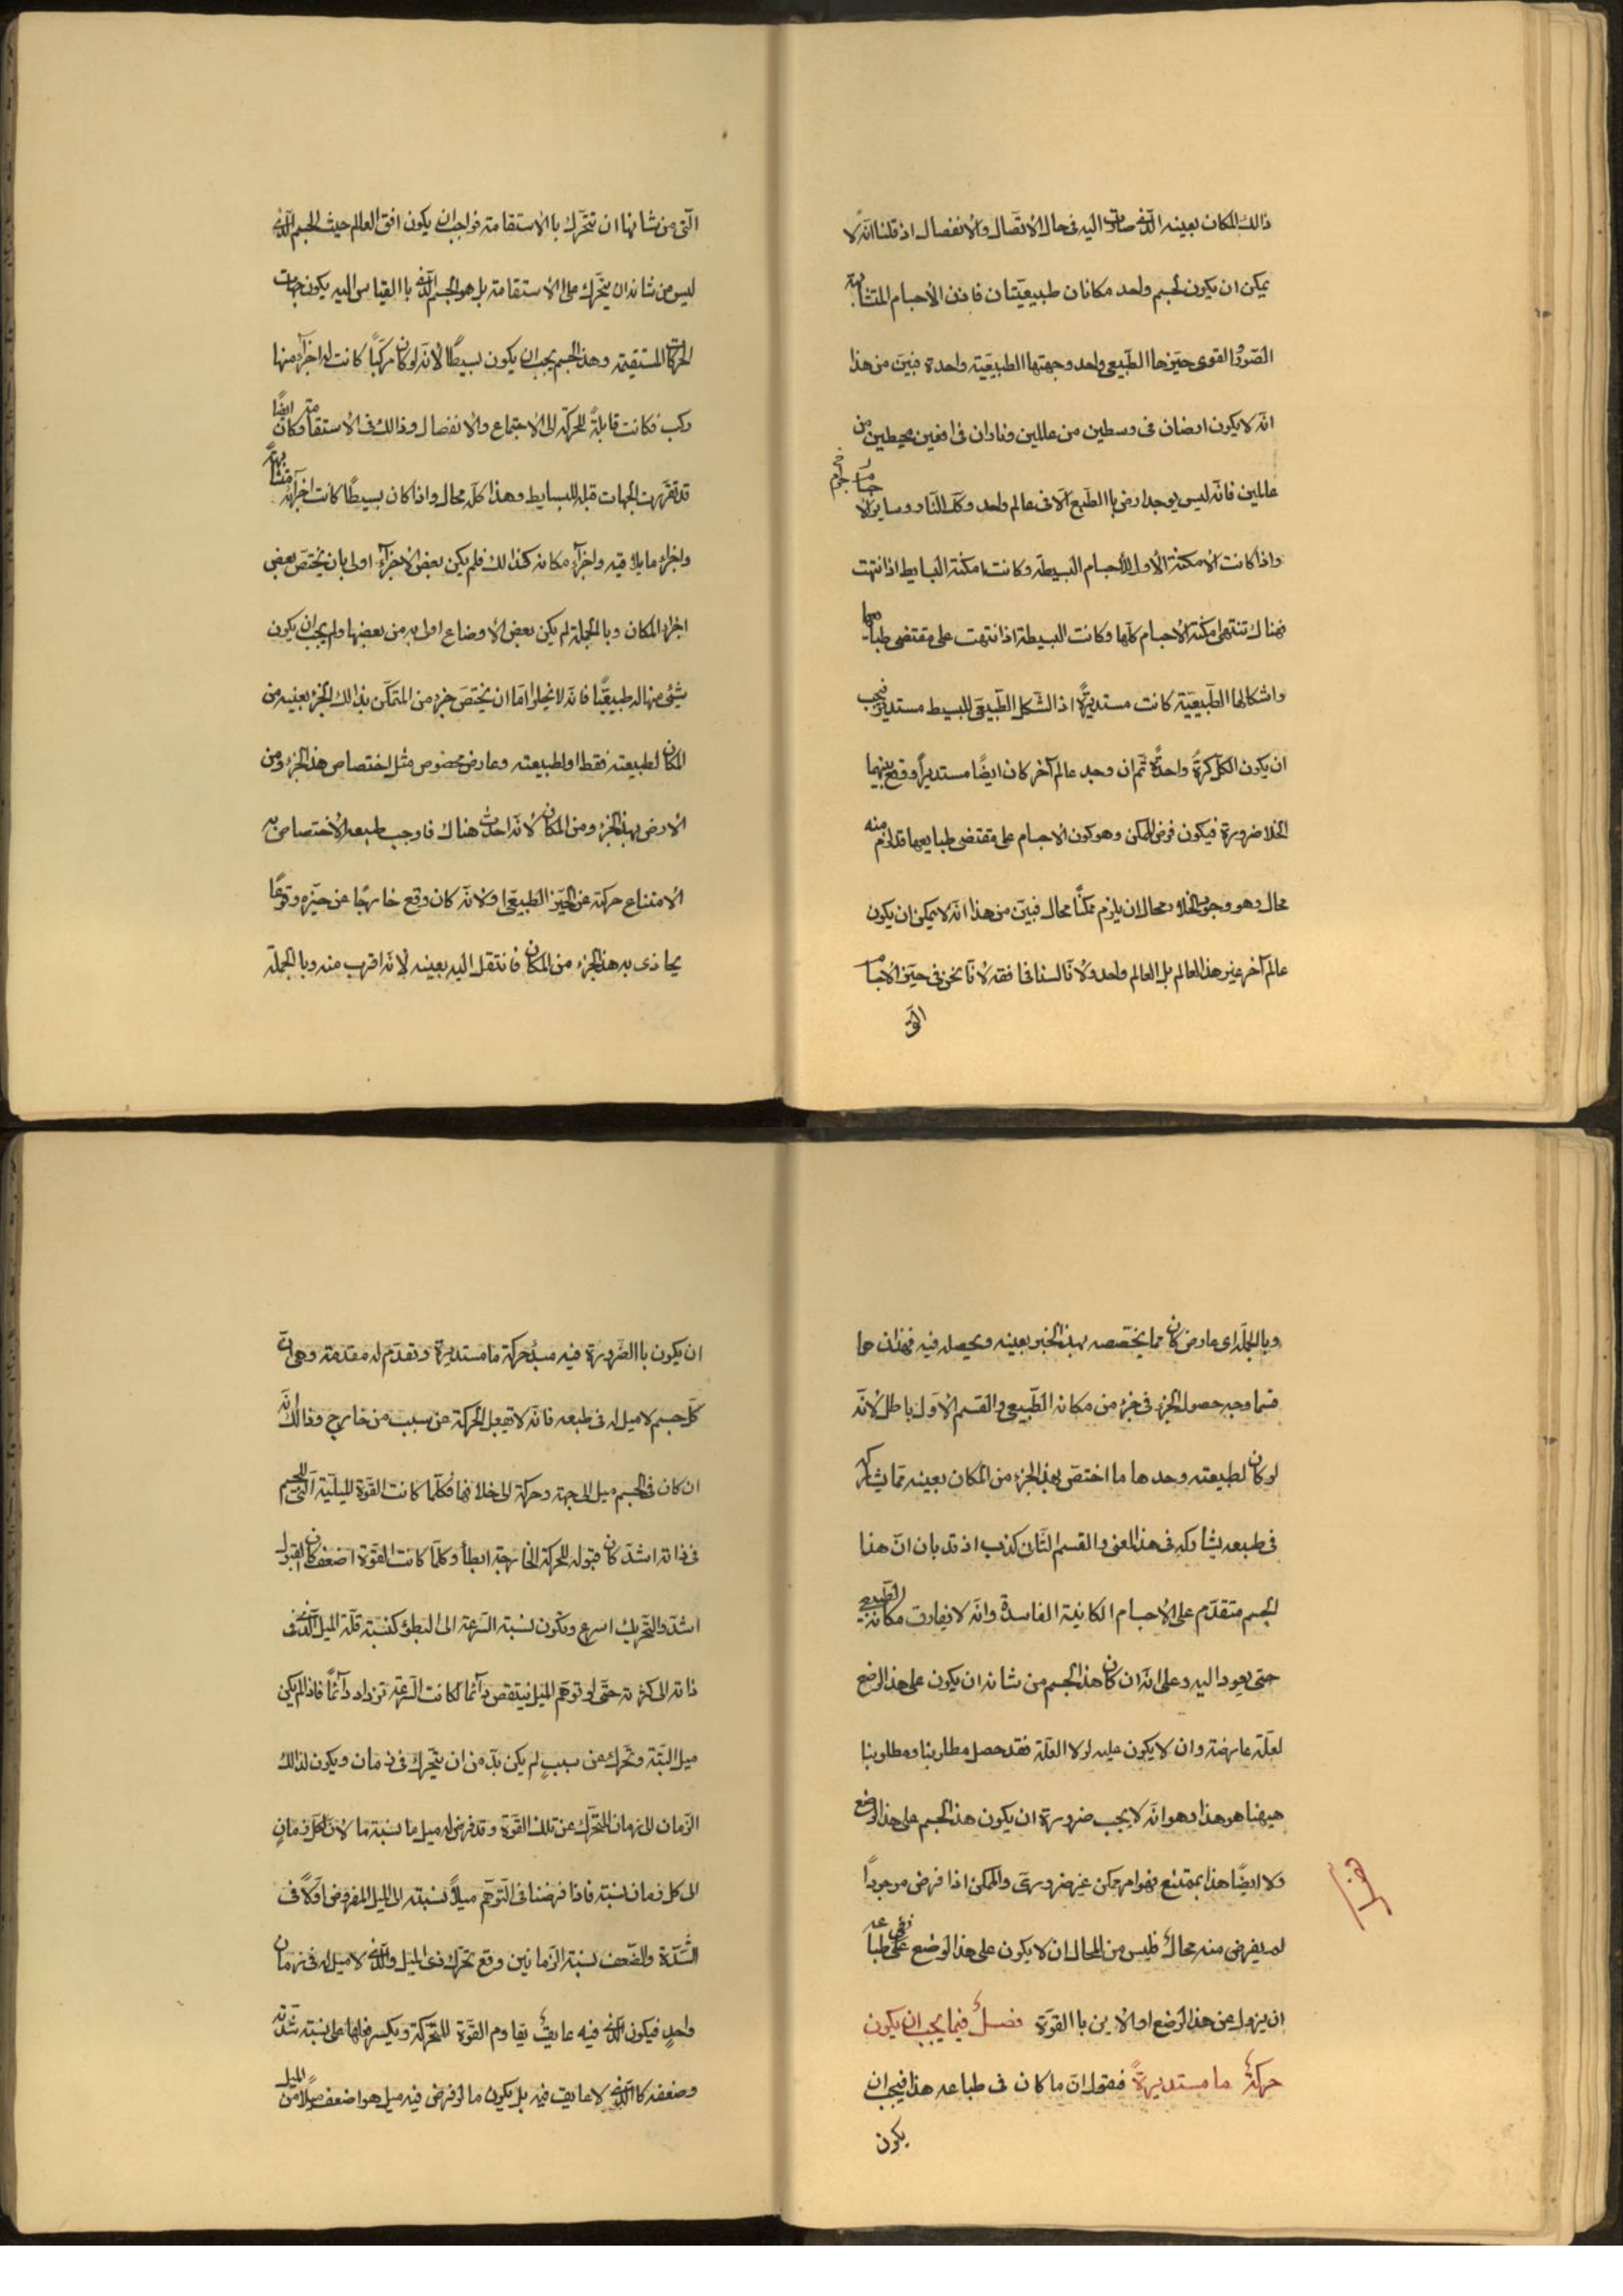 ذالك المكان بعينه الذى صارت اليه فى حال الاتصال والانفصال اذ قلنا انه لا
يمكن ان يكون لجسم واحد مكانان طبيعيّتان فاذن الاجسام المتشابهة
الصّور والقوى حيّزها الطّبيعى واحد وجهتها الطبيعيّة واحدة فبيّن من هذا
انه لا يكون ارضان فى وسطين من عالمين وناران فى افقين محيطين من
عالمين فانّه ليس يوجد ارض باالطّبع الّا فى عالم واحد وكك النّار وساير الاجرام
واذا كانت الامكنة الاول للأجسام البسيطة وكانت امكنة البسايط اذا انتهت
فهناك تنتهى امكنة الاجسام كلّها وكانت البسيطة اذا انتهت على مقتضى طباعها
واشكالها الطّبيعيّة كانت مستديرةً اذ الشّكل الطّبيعىّ للبسيط مستدير فيجب
ان يكون الكلّ كرةً واحدةً ثمّ ان وجد عالم آخر كان ايضًا مستديرًا ووقع بينهما
الخلا ضرورة فيكون فرض الممكن وهو كون الاجسام على مقتضى طبايعها قد لزم منه
محال وهو وجود الخلاء ومحال ان يلزم ممكنًا محال فبيّن من هذا انّه لا يمكن ان يكون
عالم آخر غير هذا العالم بل العالم واحد ولانّا لسنا فى افقه لانّا نحن فى حيّز الاجسام
الّتى
الّتى من شانها ان تتحّرك باالاستقامة فواجب ان يكون افق العالم حيث الجسم الّذى
ليس من شانه ان يتحّرك على الاستقامة بل هو الجسم الّذى باالقياس اليه يكون جهات
الحركات المستقيمة وهذا الجسم يجب ان يكون بسيطًا لانّه لو كان مركّبًا كانت له اجزآء منها
ركب فكانت قابلةً للحركة الى الاجتماع والانفصال وذالك فى الاستقامة وكان ايضًا
قد تقرّرت الجهات قبله للبسايط وهذا كلّه محال واذا كان بسيطًا كانت اجزآئه متشابهةً
واجزاء ما يلاقيه واجزآء مكانه كذالك فلم يكن بعض الاجزآء اولى بان يختصّ ببعض
اجزاء المكان وباالجملة لم يكن بعض الاوضاع اولى به من بعضها ولم يجب ان يكون
شىء منها له طبيعيًّا فانّه لا يخلوا امّا ان يختصّ جزء من المتمكّن بذالك الجزء بعينه من
المكان لطبيعته فقط او لطبيعته وعارض مخصوص مثل اختصاص هذا الجزء من
الارض بهذا الجزء ومن المكان لانّه احدث هناك فاوجب طبعه الاختصاص به
لامتناع حركته عن الحيّز الطّبيعىّ او لانّه كان وقع خارجًا عن حيّزه وقوعًا
يحاذى به هذا الجزء من المكان فانتقل اليه بعينه لانّه اقرب منه وباالجملة
وباالجملة اى عارض كان ممّا يخصّصه بهذا الجزء بعينه ويحصله فيه فهذان هما
قسما وجه حصول الجزء فى جزء من مكانه الطّبيعى والقسم الاوّل باطل لانّه
لو كان لطبيعته وحدها ما اختصّ بهذا الجزء من المكان بعينه ممّا يشاركه
فى طبعه يشاركه فى هذا المعنى والقسم الثّانى كذب اذ قد بان انّ هذا
الجسم متقدّم على الاجسام الكاينة الفاسدة وانّه لا يفارق مكانه الطّبيعى
حتى يعود اليه وعلى انّه ان كان هذا الجسم من شانه ان يكون على هذا الوضع
لعلّة عارضة وان لا يكون عليه لولا العلّة فقد حصل مطلوبنا ومطلوبنا
هيهنا هو هذا وهو انّه لا يجب ضرورة ان يكون هذا الجسم على هذا الوضع
ولا ايضًا هذا بممتنع فهو امر ممكن غير ضرورىّ والممكن اذا فرض موجودًا
لم يعرض منه محال فليس من المحال ان لا يكون على هذا الوضع ففى طباعه
ان يزول عن هذا الوضع او الاين باالقوّة فصل فيما يجب ان يكون
حركة ما مستديرةً فنقول انّ ما كان فى طباعه هذا فيجب ان
يكون
ان يكون باالضّرورة فيه مبدء حركة ما مستديرة ونقدّم له مقدمة وهى انّ
كلّ جسم لا ميل له فى طبعه فانّه لا يقبل الحركة عن سبب من خارج وذالك انّه
ان كان فى الجسم ميل الى جهة وحركة الى خلافها فكلّما كانت القوّة الميليّة الّتى للجسم
فى ذاته اشدّ كان قبوله للحركة الخارجة ابطأ وكلّما كانت القوّة اضعف كان القبول
اشدّ والتّحريك اسرع ويكون نسبة السّرعة الى البطؤ كنسبة قلّة الميل الّذى فى
ذاته الى كثرته حتّى لو توهّم الميل ينتقص دآئمًا لكانت السّرعة تزداد دآئمًا فاذا لم يكن
ميل البتّة وتحّرك عن سببٍ لم يكن بدّ من ان يتحّرك فى زمان ويكون لذالك
الزّمان الى زمان المتحّرك عن تلك القوّة وقد فرض له ميل ما نسبة ما لانّ لكلّ زمانٍ
الى كل زمان نسبة فاذا فرضنا فى التّوهّم ميلًا نسبته الى الميل المفروض اوّلًا فى
الشّدّة والضّعف نسبة الزّمانين وقع تحّرك ذى الميل والّذى لا ميل له فى زمان
واحدٍ فيكون الّذى فيه عايق يقاوم القوّة المتحركة ويكسر فعلها على نسبة شدّته
وضعفه كالّذى لا عايق فيه بل يكون ما لو فرض فيه ميل هو اضعف من الميل